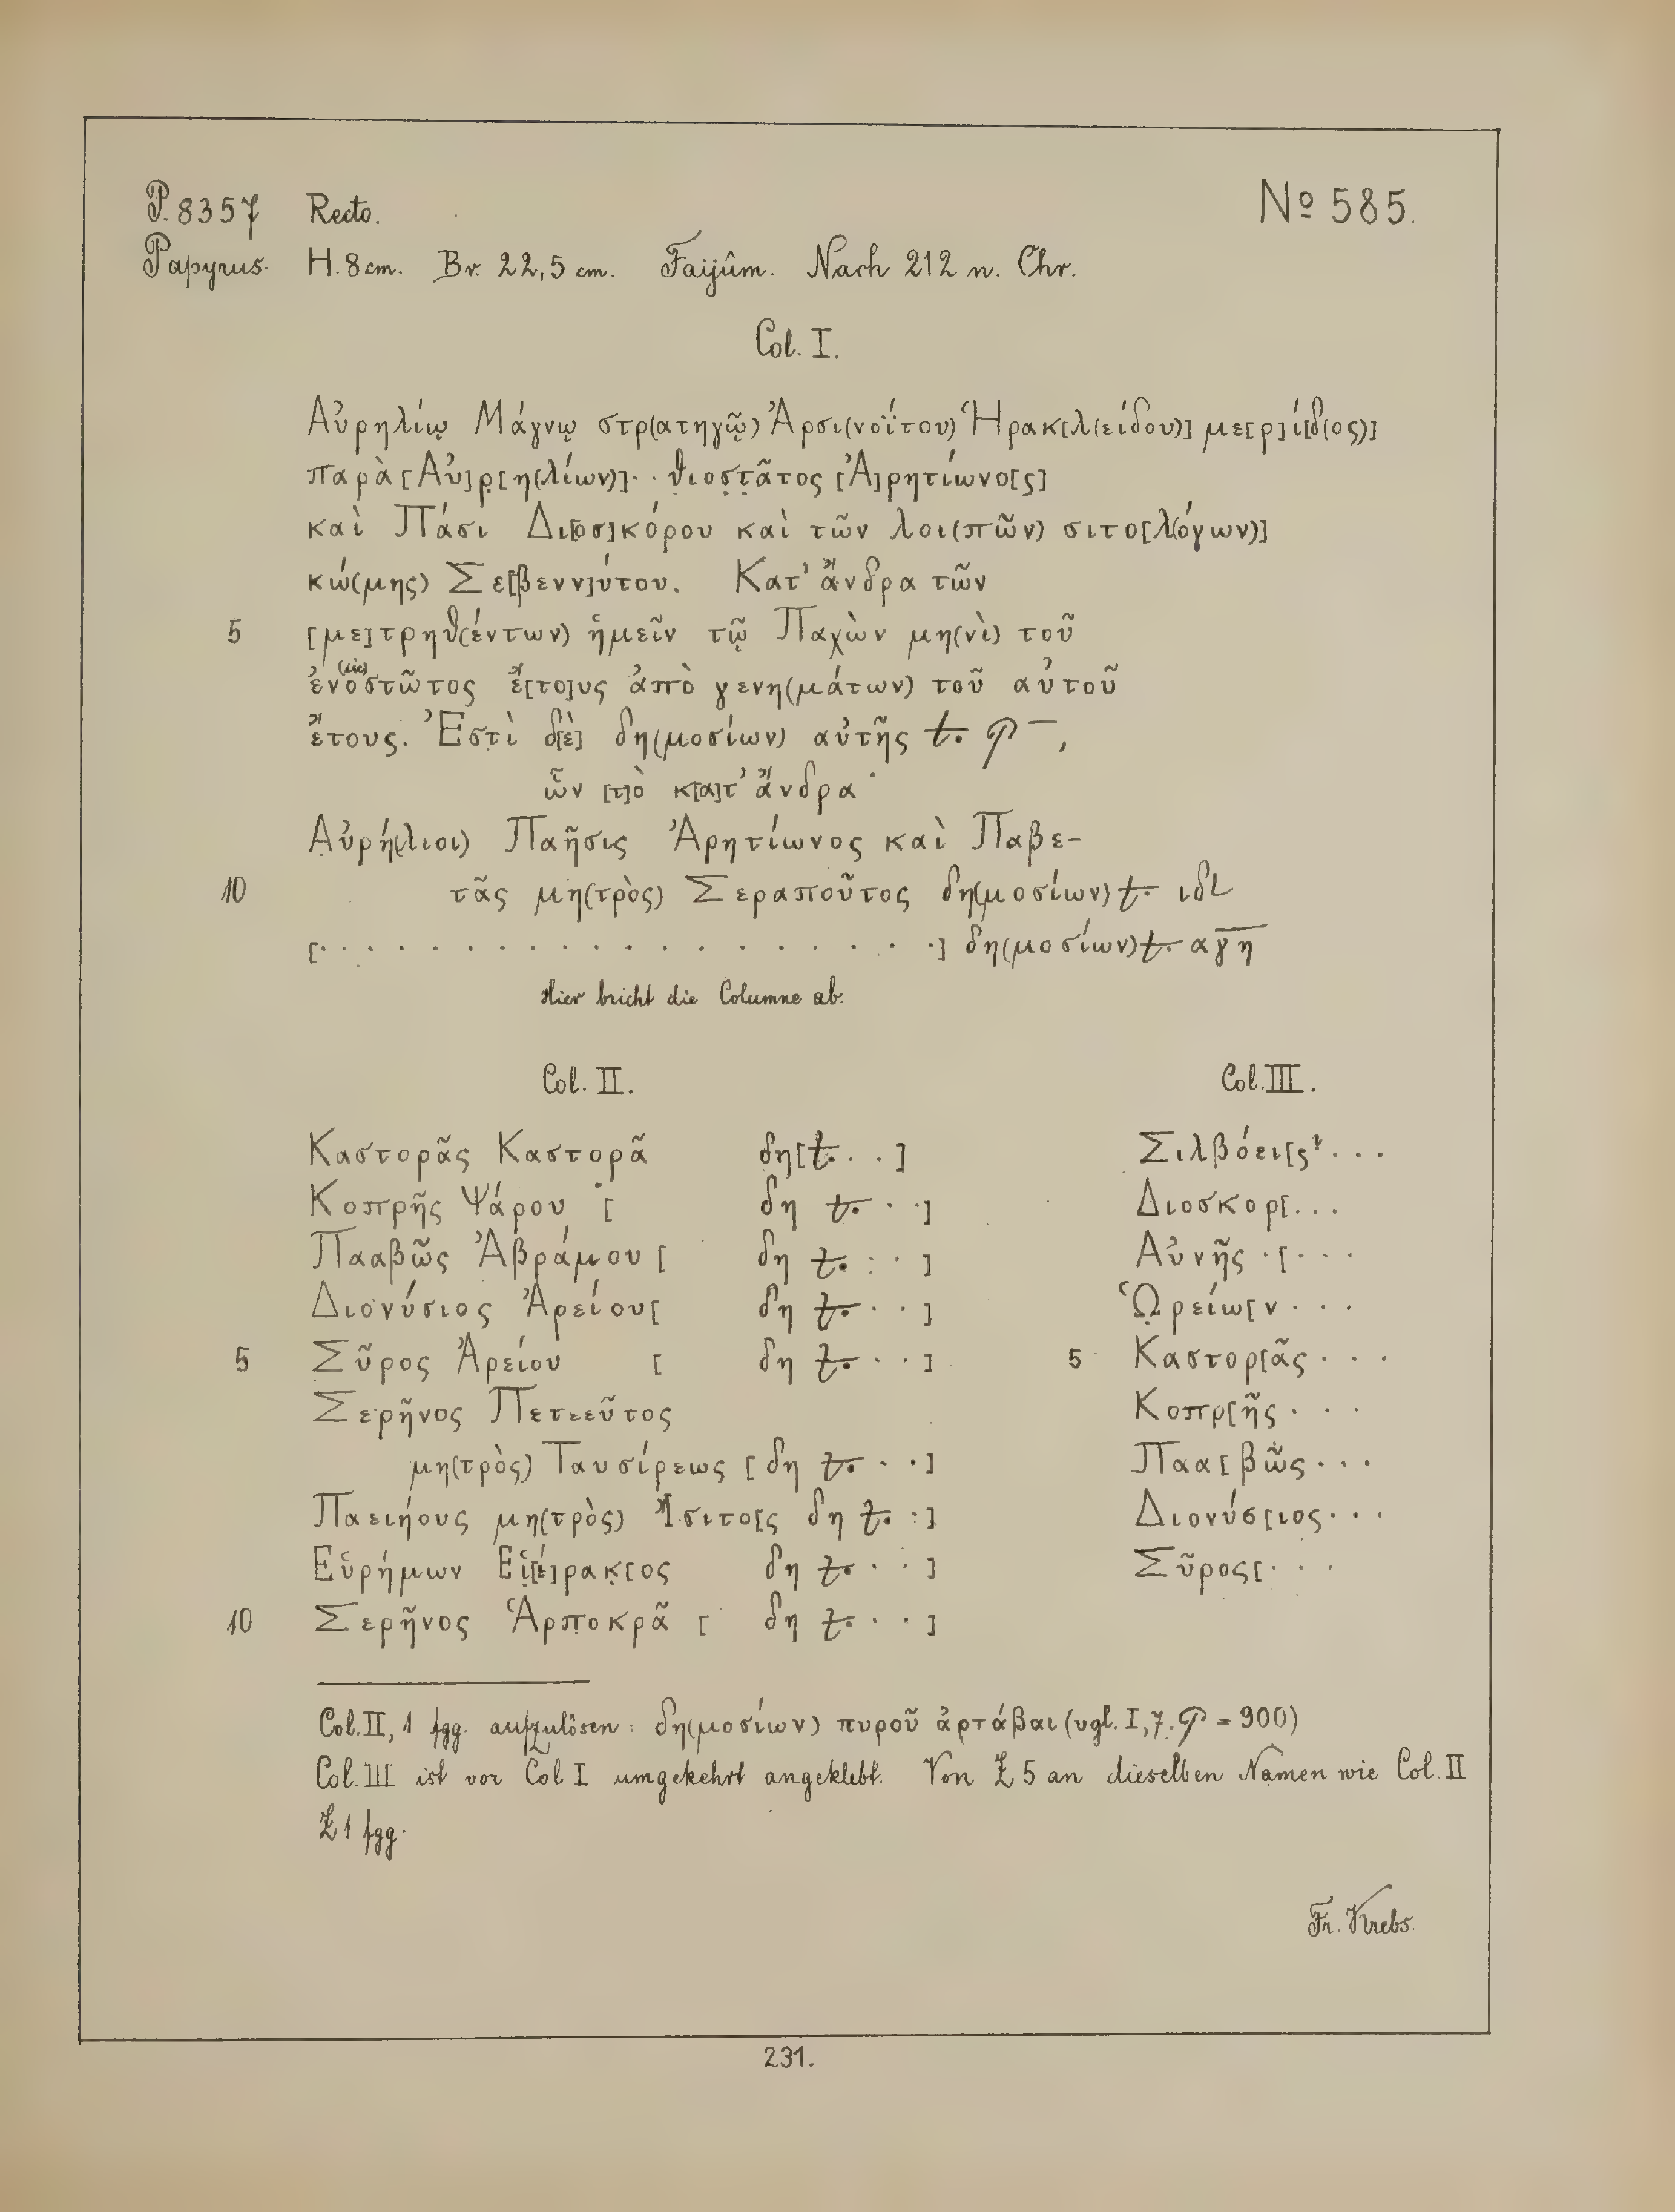 P. 8357 Recto. № 585.
Papyrus. H. 8 cm. Br. 22,5 cm. Faijûm. Nach 212 n. Chr.
Col. I.
Αὐρηλίῳ Μάγνῳ στρ(ατηγῷ) Ἀρσι(νοΐτου) Ἡρακ[λ(είδου)] με[ρ]ί[δ(ος)]
παρὰ [Αὐ]ρ̣[η(λίων)]. . θ̣ιοσ̣τ̣ᾶτος [Ἀ]ρητίωνο[ς]
καὶ Πάσι Δι[οσ]κόρου καὶ τῶν λοι(πῶν) σιτο[λ(όγων)]
κώ(μης) Σε[βενν]ύτου. Κατ' ἄνδρα τῶν
5 [με]τρηθ(έντων) ἡμεῖν τῷ Παχὼν μη(νὶ) τοῦ
ἐνοστῶτος (sic) ἔ[το]υς ἀπὸ γενη(μάτων) τοῦ αὐτοῦ
ἔτους. Ἐστὶ δ[ὲ] δη(μοσίων) αὐτῆς 𐅝 ϡ ‾,
ὧν [τ]ὸ κ[α]τ' ἄνδρα·
Α̣ὐρή(λιοι) Παῆσις Ἀρητίωνος καὶ Παβε-
10 τᾶς μη(τρὸς) Σεραποῦτος δη(μοσίων) 𐅝 ιδL
[. . . . . . . . . . . . . . . . . .] δη(μοσίων) 𐅝 αγ̅η̅
Hier bricht die Columne ab.
Col. II.
Καστορᾶς Καστορᾶ δη[𐅝 . . ]
Κοπρῆς Ψάρου [ δη 𐅝 . . ]
Πααβῶς Ἀβράμου [ δη 𐅝 . . ]
Διονύσιος Ἀρείου[ δη 𐅝 . . ]
5 Σῦρος Ἀρείου [ δη 𐅝 . . ]
Σερῆνος Πετεεῦτος
μη(τρὸς) Ταυσίρεως [ δη 𐅝 . . ]
Παειήους μη(τρὸς) Ἴσιτο[ς δη 𐅝 . ]
Εὑρήμων Εἱ̣[έ]ρακ̣[ος δη 𐅝 . . ]
10 Σερῆνος Ἁρποκρᾶ [ δη 𐅝 . . ]
Col. III.
Σιλβόει[ς? . . .
Διοσκορ[. . .
Αὐνῆς .[. . .
Ὡ̣ρείω[ν . . .
5 Καστορ[ᾶς . . .
Κοπρ[ῆς . . .
Παα[βῶς . . .
Διονύσ[ιος . . .
Σῦρος[. . .
Col. II, 1 fgg. aufzulösen: δη(μοσίων) πυροῦ ἀρτάβαι (vgl. I, 7. ϡ = 900)
Col. III ist vor Col I umgekehrt angeklebt. Von Z 5 an dieselben Namen wie Col. II
Z 1 fgg.
Fr. Krebs.
231.